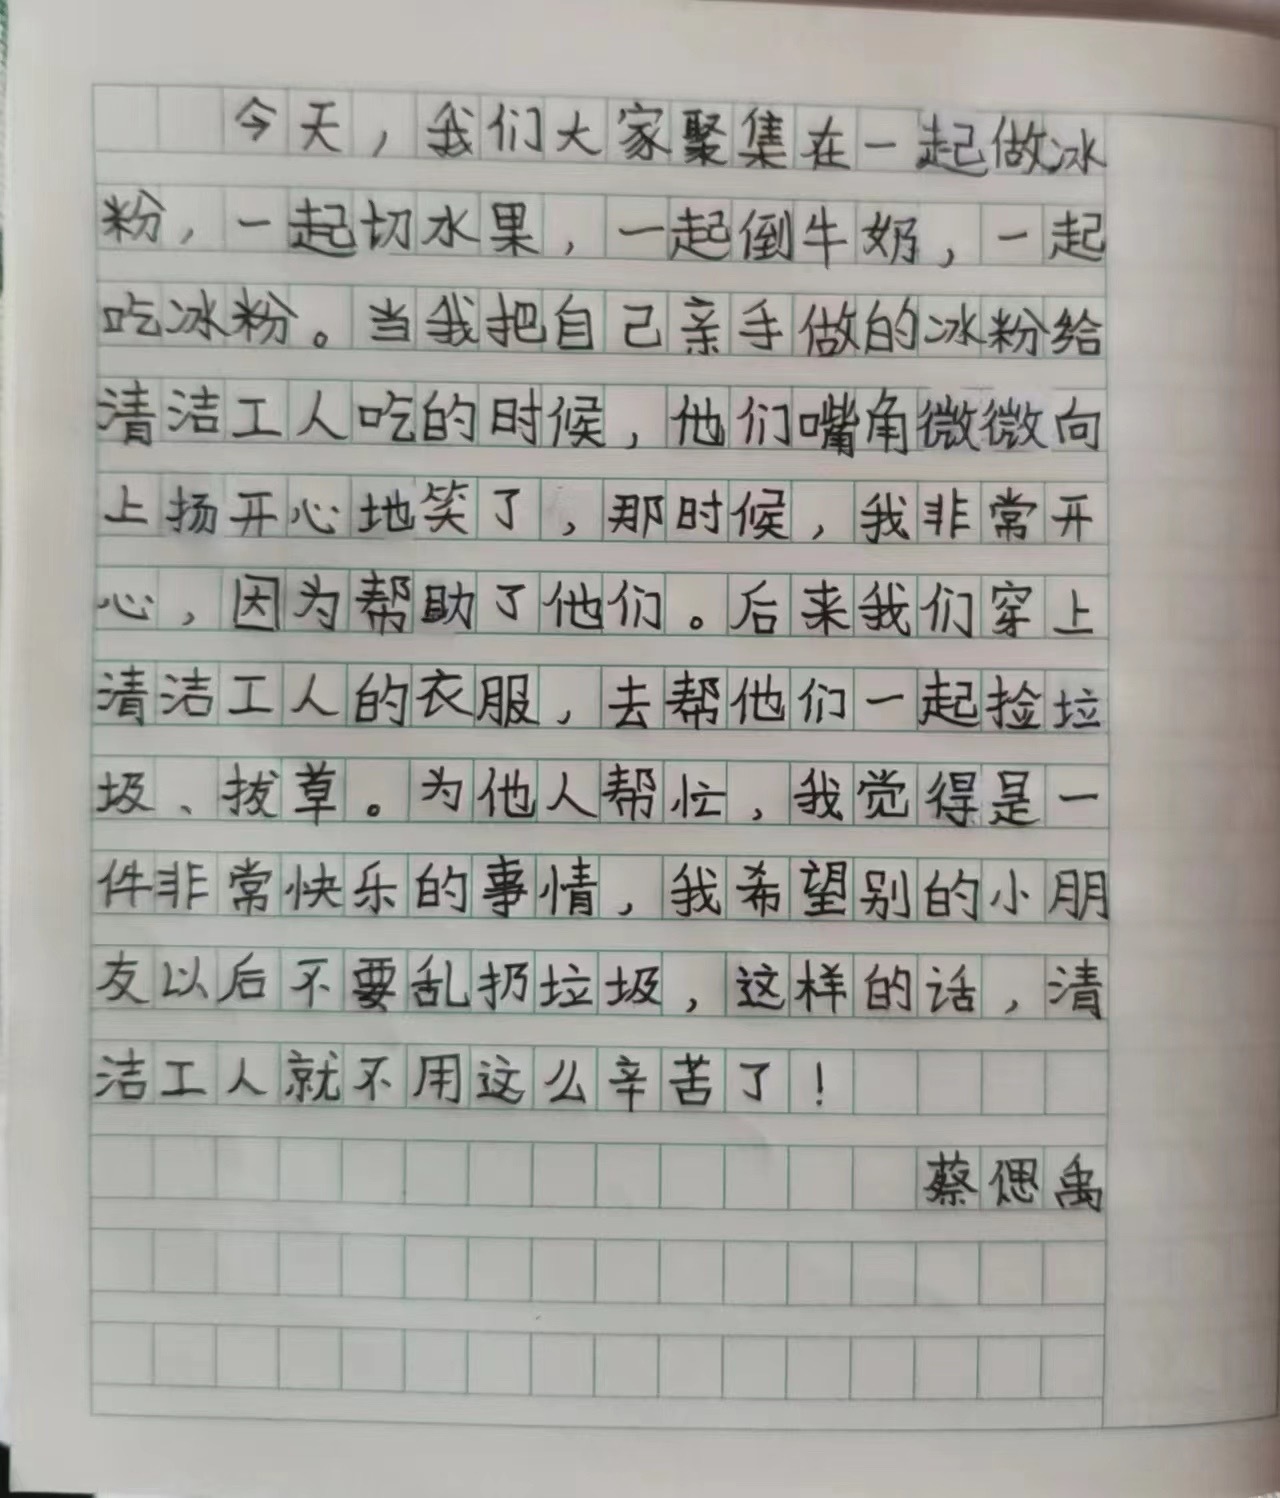 今天，我们大家聚集在一起做冰
粉，一起切水果，一起倒牛奶，一起
吃冰粉。当我把自己亲手做的冰粉给
清洁工人吃的时候，他们嘴角微微向
上扬开心地笑了，那时候，我非常开
心，因为帮助了他们。后来我们穿上
清洁工人的衣服，去帮他们一起捡垃
圾、拔草。为他人帮忙，我觉得是一
件非常快乐的事情，我希望别的小朋
友以后不要乱扔垃圾，这样的话，清
洁工人就不用这么辛苦了！
蔡偲禹